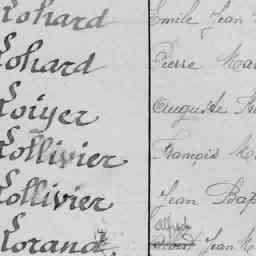 Lohard Emile Jean
Lohard Pierre Mar
Loiyer Auguste
Lollivier François M
Lollivier Jean Bap
Lorand Alfred Jean M